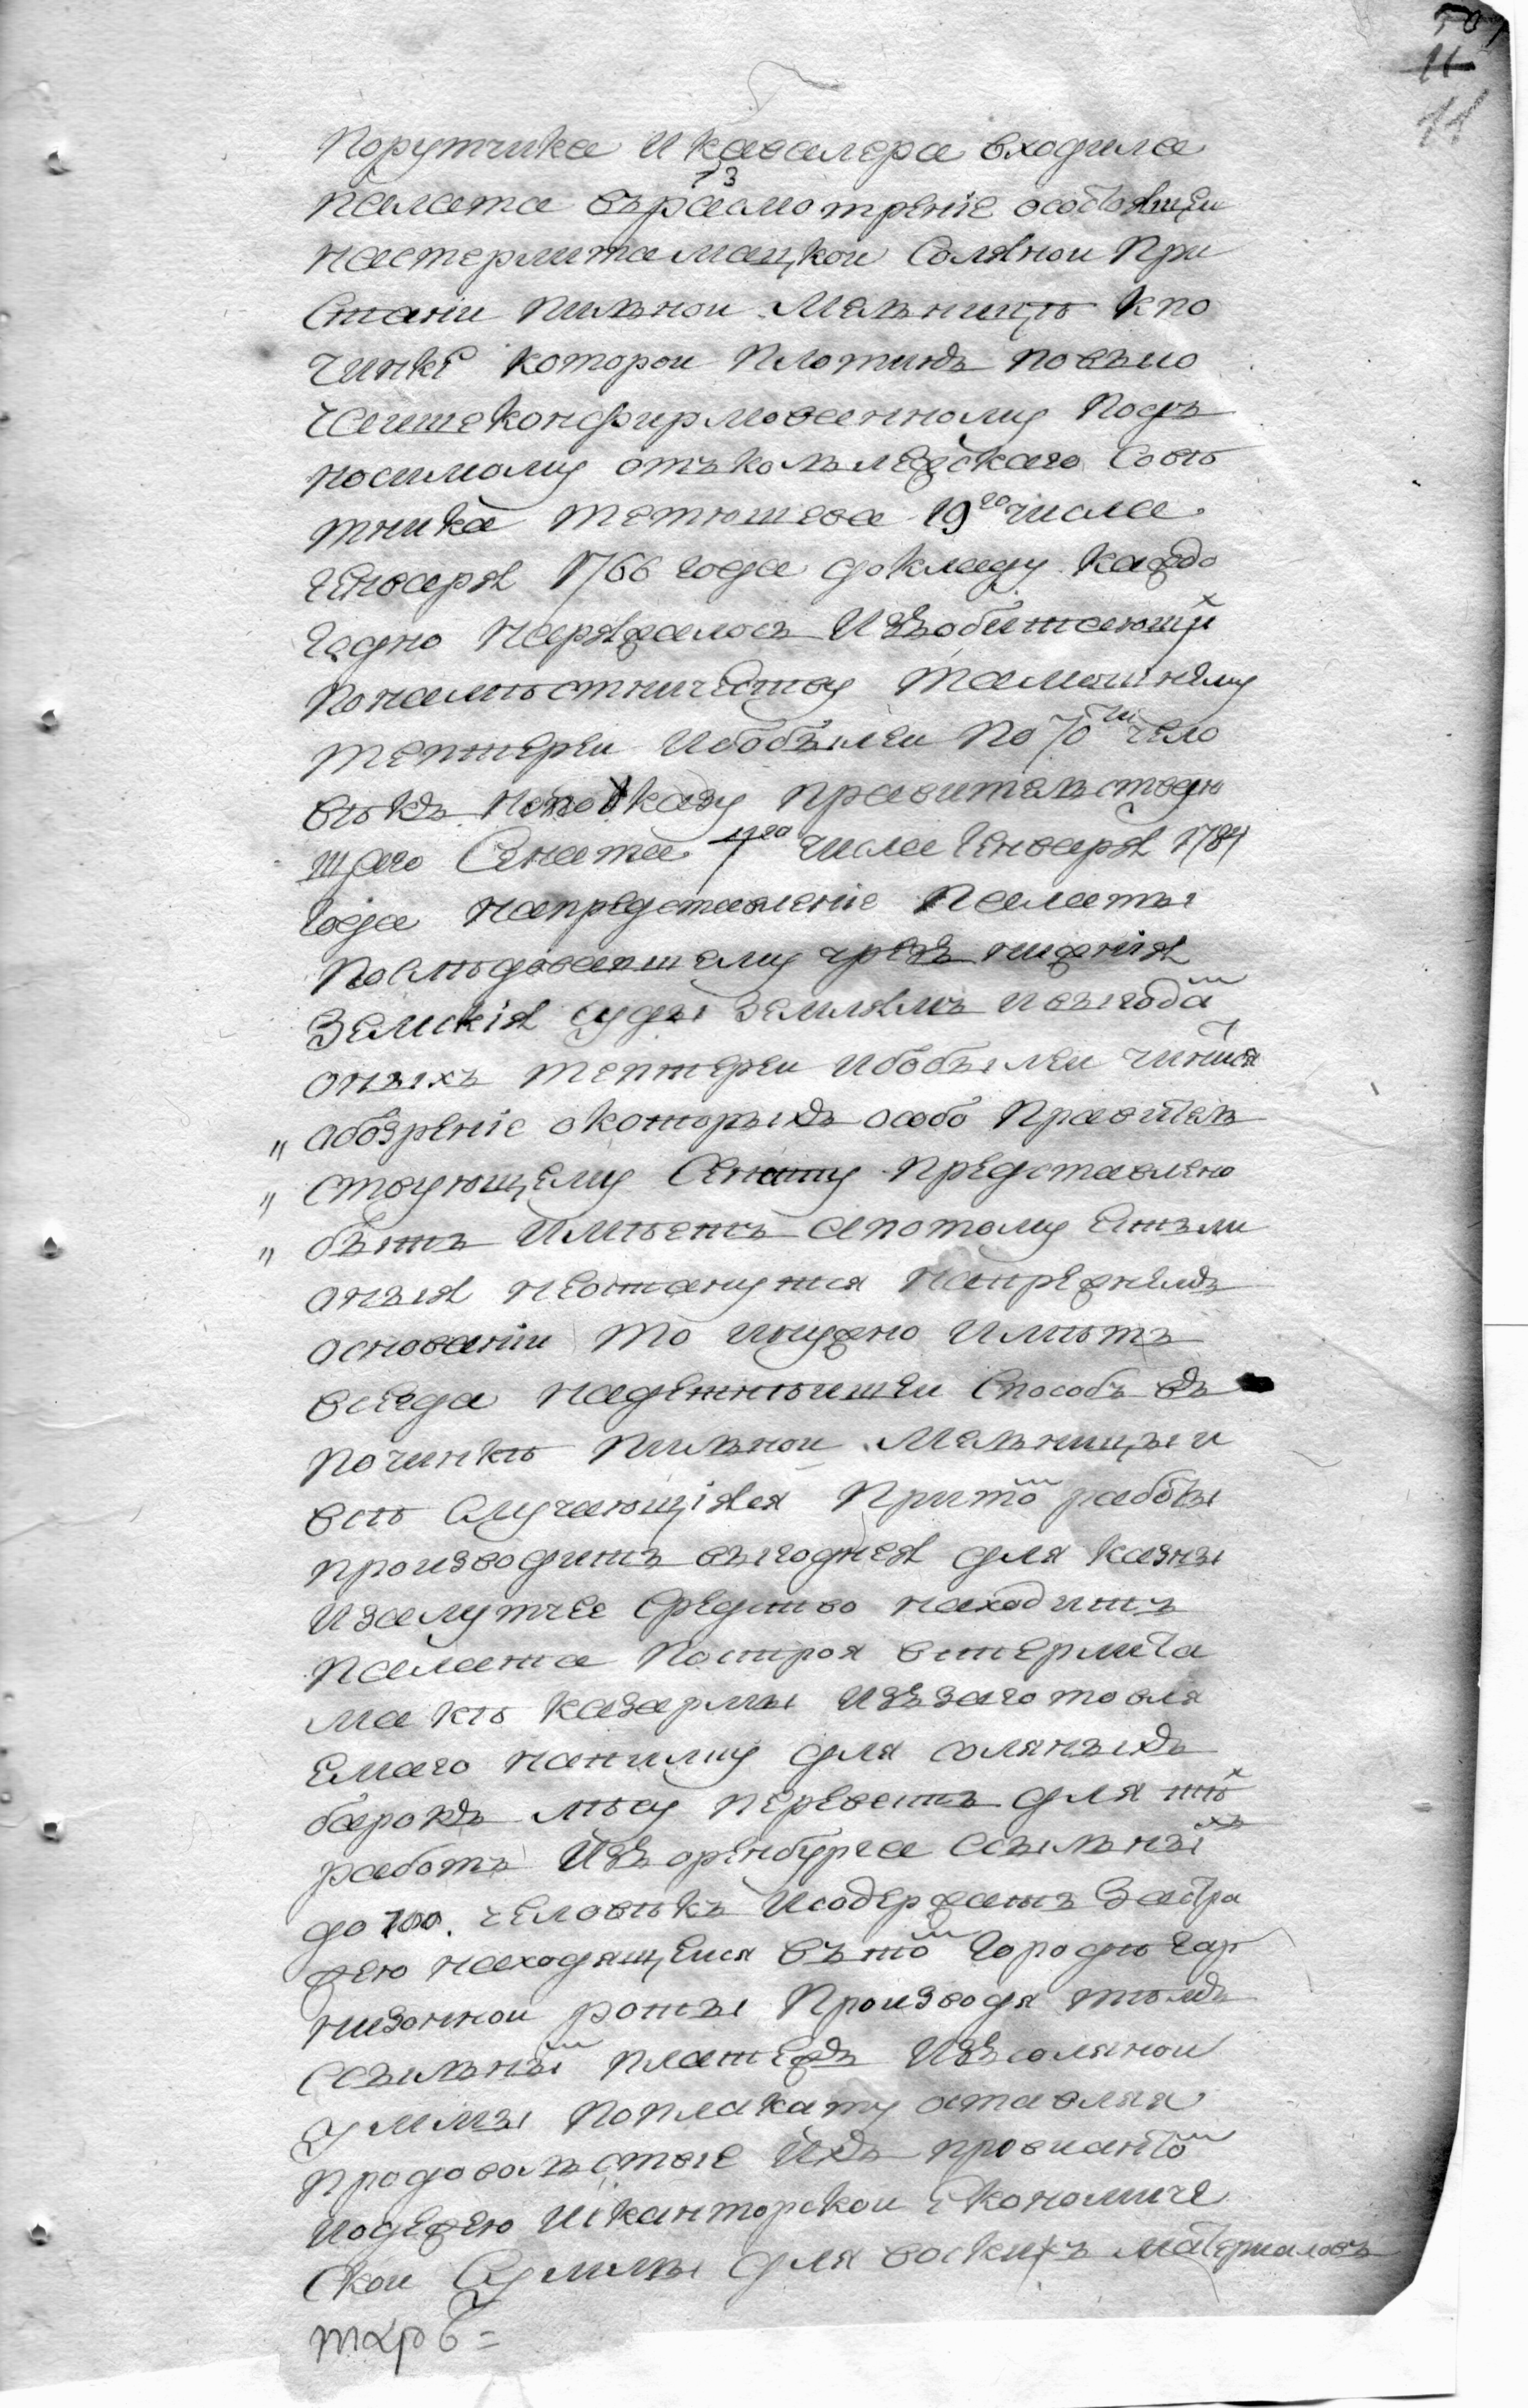 11
11
Порутчика и кавалера входила
палата въ разсмотрение особоявшеи
настерлитамацкои Солянои При
Стани пильнои Мельницѣ кпо
чинкѣ которои плотинъ повысо
чаишеконфирмованному Подъ
носимому отъ колѣжскаго Совѣ
тника тетюшева 19го числа
Генваря 1766 года докладу каждо
годно наряжалось Изъ обитающихъ
понамѣстничеству тамошнему
тептереи ибобылеи по 70ти чело
вѣкъ нопоуказу правительствую
щаго Сената 11го числа Генваря 1784
года напредставление палаты
послѣдовавшему чрезъ нижния
Земския суды землямъ ивыгодам
оныхъ тептереи ибобылеи чинитса
„ обозрение окоторыхъ особо Правитель
„ ствующему Сенату представлено
„ быть имѣетъ апотому Ежели
оныя неостанутся напрежнемъ
основании то инужно имѣть
всегда надежнѣишеи Способъ въ
починкѣ пильнои Мельницы и
всѣ случающияся притом работы
производить выгоднея для казны
изалутчее средство находитъ
палата построя встерлита
макѣ казармы изъ заготовля
емаго напилку для соляныхъ
барокъ лѣсу перевесть для тѣх
работъ Изъ оренбурга ссыльныхъ
до 100. человѣкъ исодержать застра
жею находящеися въ том городѣ гар
низоннои роты производя темъ
ссыльным платежъ изъ солянои
суммы поплакату аставляя
продовольствие ихъ провиантом
иодежею ис канторскои экономиче
скои суммы для всякихъ материаловъ